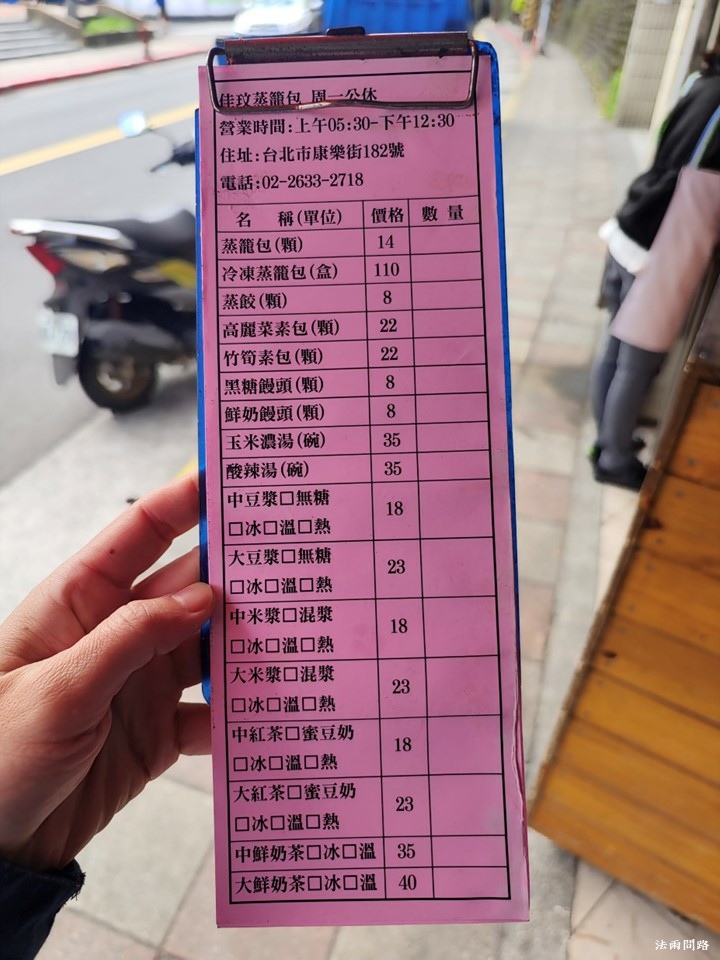 佳玟蒸籠包 周一公休
營業時間:上午05:30-下午12:30
住址:台北市康樂街182號
電話:02-2633-2718
名 稱(單位) 價格 數 量
蒸籠包(顆) 14
冷凍蒸籠包(盒) 110
蒸餃(顆) 8
高麗菜素包(顆) 22
竹筍素包(顆) 22
黑糖饅頭(顆) 8
鮮奶饅頭(顆) 8
玉米濃湯(碗) 35
酸辣湯(碗) 35
中豆漿□無糖 18
□冰□溫□熱
大豆漿□無糖 23
□冰□溫□熱
中米漿□混漿 18
□冰□溫□熱
大米漿□混漿 23
□冰□溫□熱
中紅茶□蜜豆奶 18
□冰□溫□熱
大紅茶□蜜豆奶 23
□冰□溫□熱
中鮮奶茶□冰□溫 35
大鮮奶茶□冰□溫 40
法雨問路